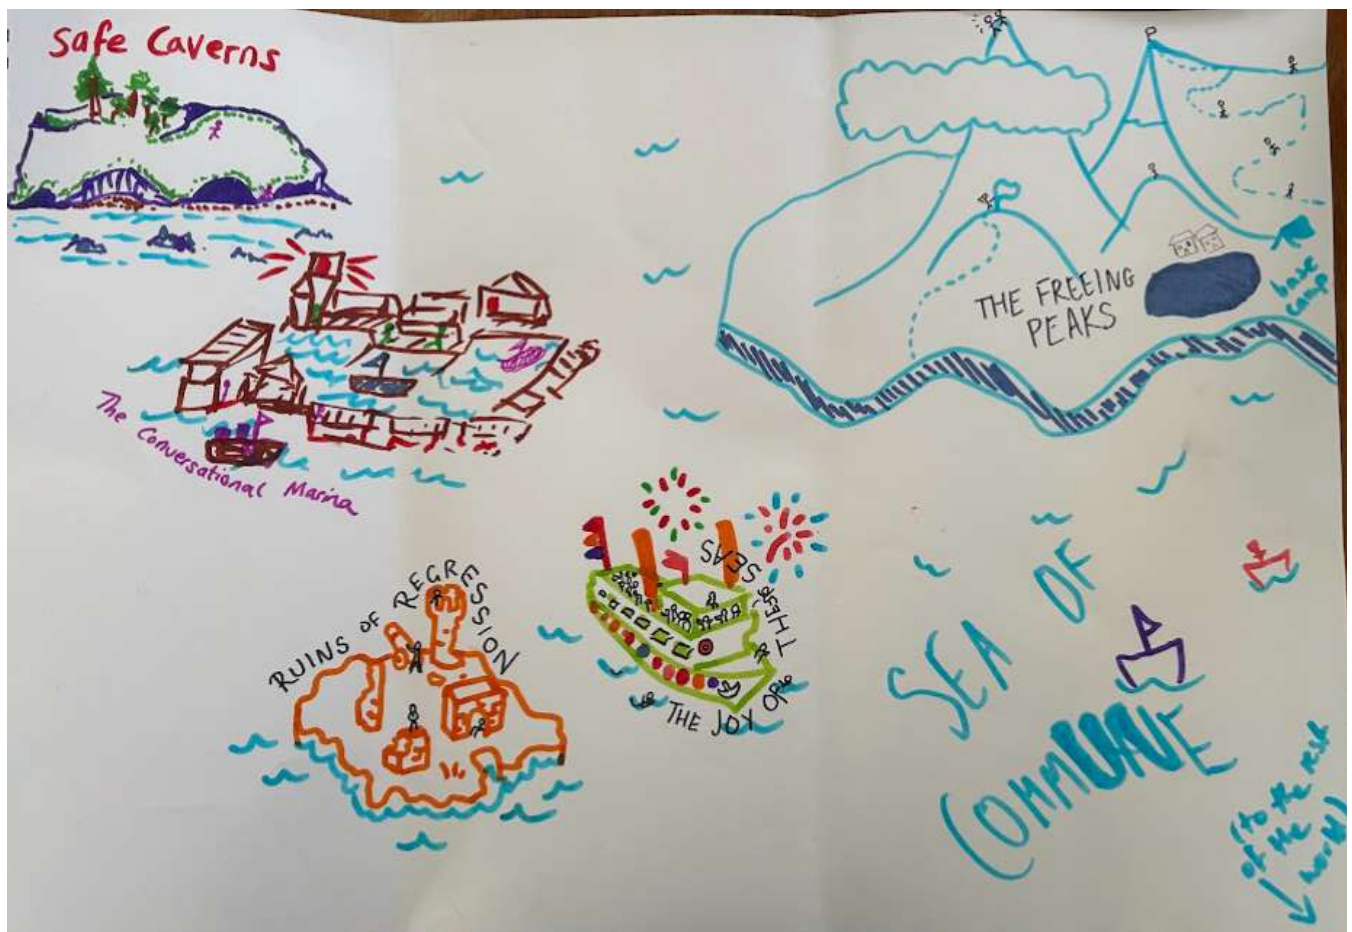 Safe Caverns
THE FREEING
PEAKS
base
camp
The Conversational Marina
RUINS OF REGRESSION
THE JOY OF
THESE
SEAS
SEA OF
COMMUNE
(to the rest
of the
world)